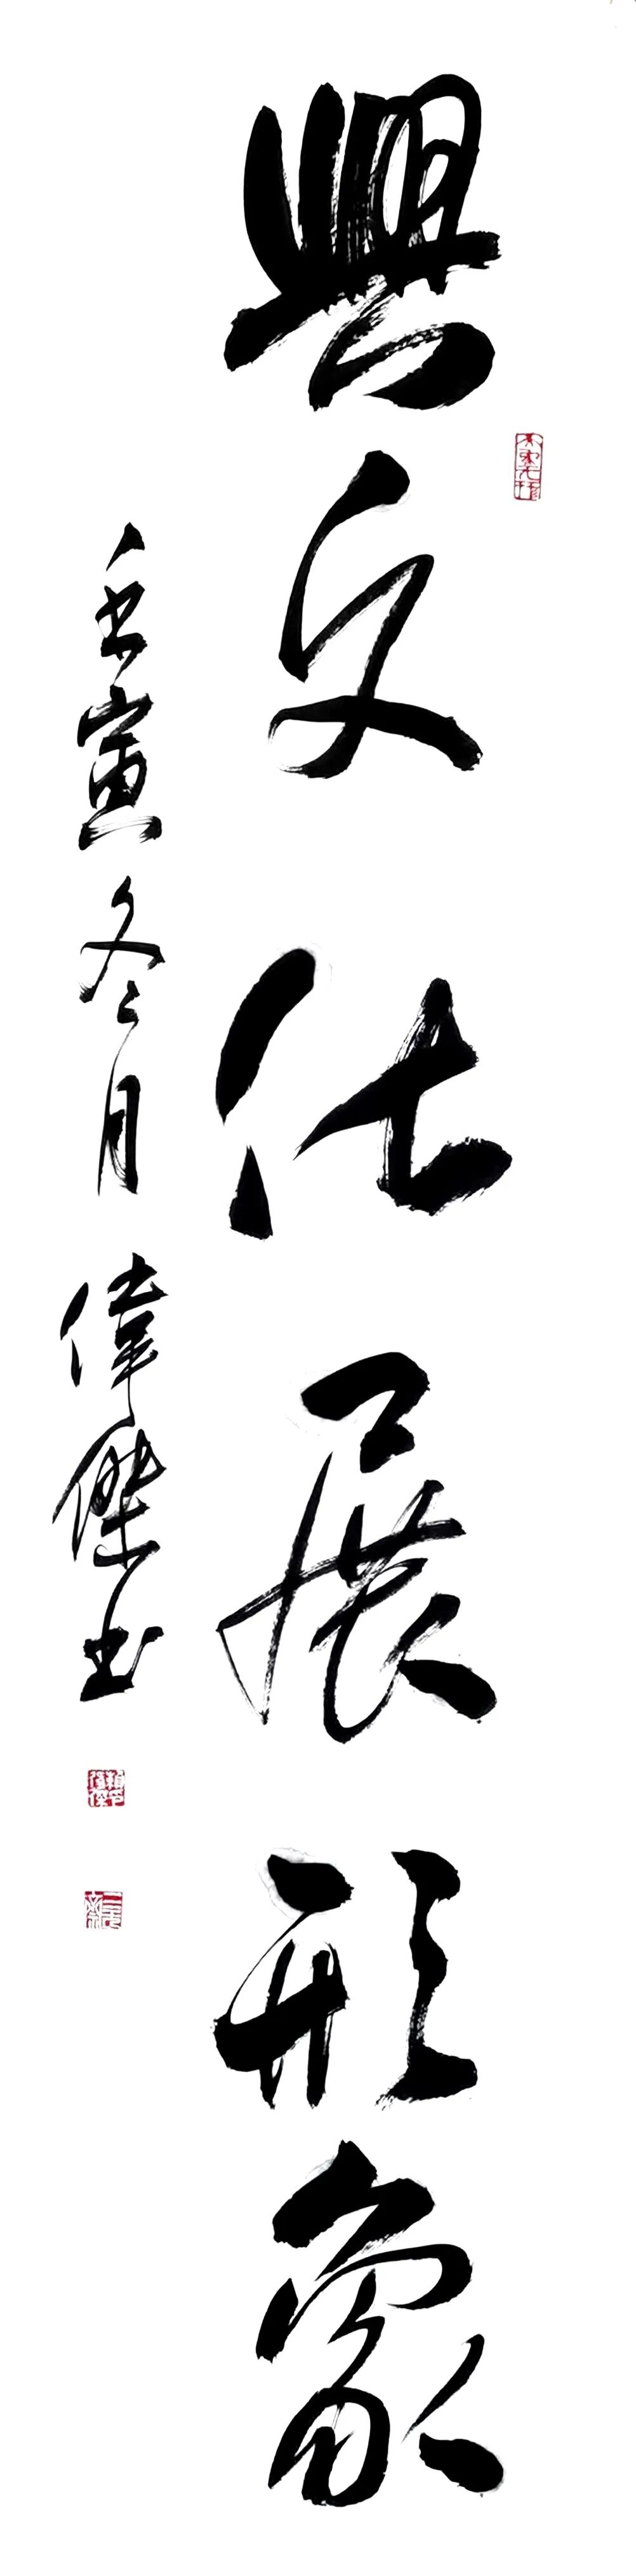 興文化展形象
壬寅冬月偉傑书